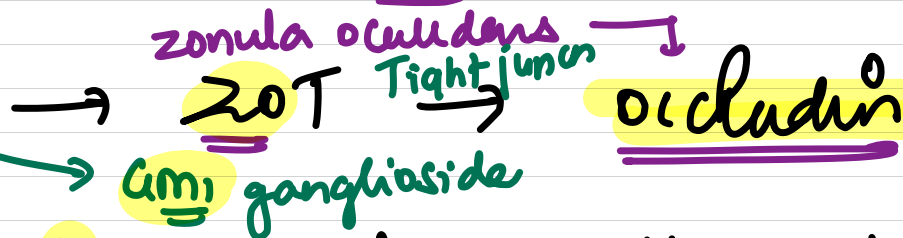 zonula oculudens
→ ZOT Tight juncn → occludin
→ GM1 ganglioside